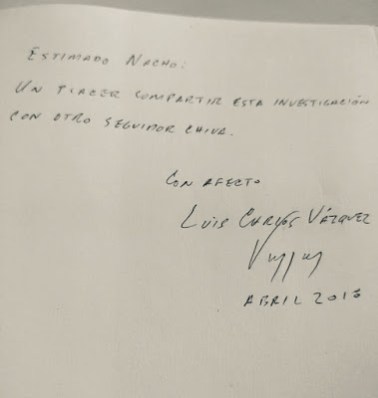 ESTIMADO NACHO:
UN PLACER COMPARTIR ESTA INVESTIGACIÓN
CON OTRO SEGUIDOR CHIVA.
CON AFECTO
LUIS CARLOS VÁZQUEZ
ABRIL 2016